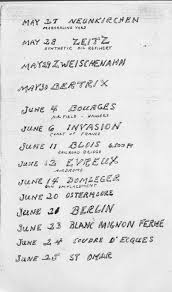 MAY 27 NEUNKIRCHEN
MARSHALING YARD
MAY 28 ZEITZ
SYNTHETIC OIL REFINERY
MAY 29 ZWEISCHENAHN
MAY 30 BERTRIX
JUNE 4 BOURGES
AIR FIELD - HANGERS
JUNE 6 INVASION
COAST OF FRANCE
JUNE 11 BLOIS
RAILROAD BRIDGE
JUNE 12 EVREUX
AIRDROME
JUNE 14 DOMLEGER
GUN EMPLACEMENT
JUNE 20 OSTERMOORE
JUNE 21 BERLIN
JUNE 23 BLANC MIGNON FERME
JUNE 24 COUDRE D'ECQUES
JUNE 25 ST OMER